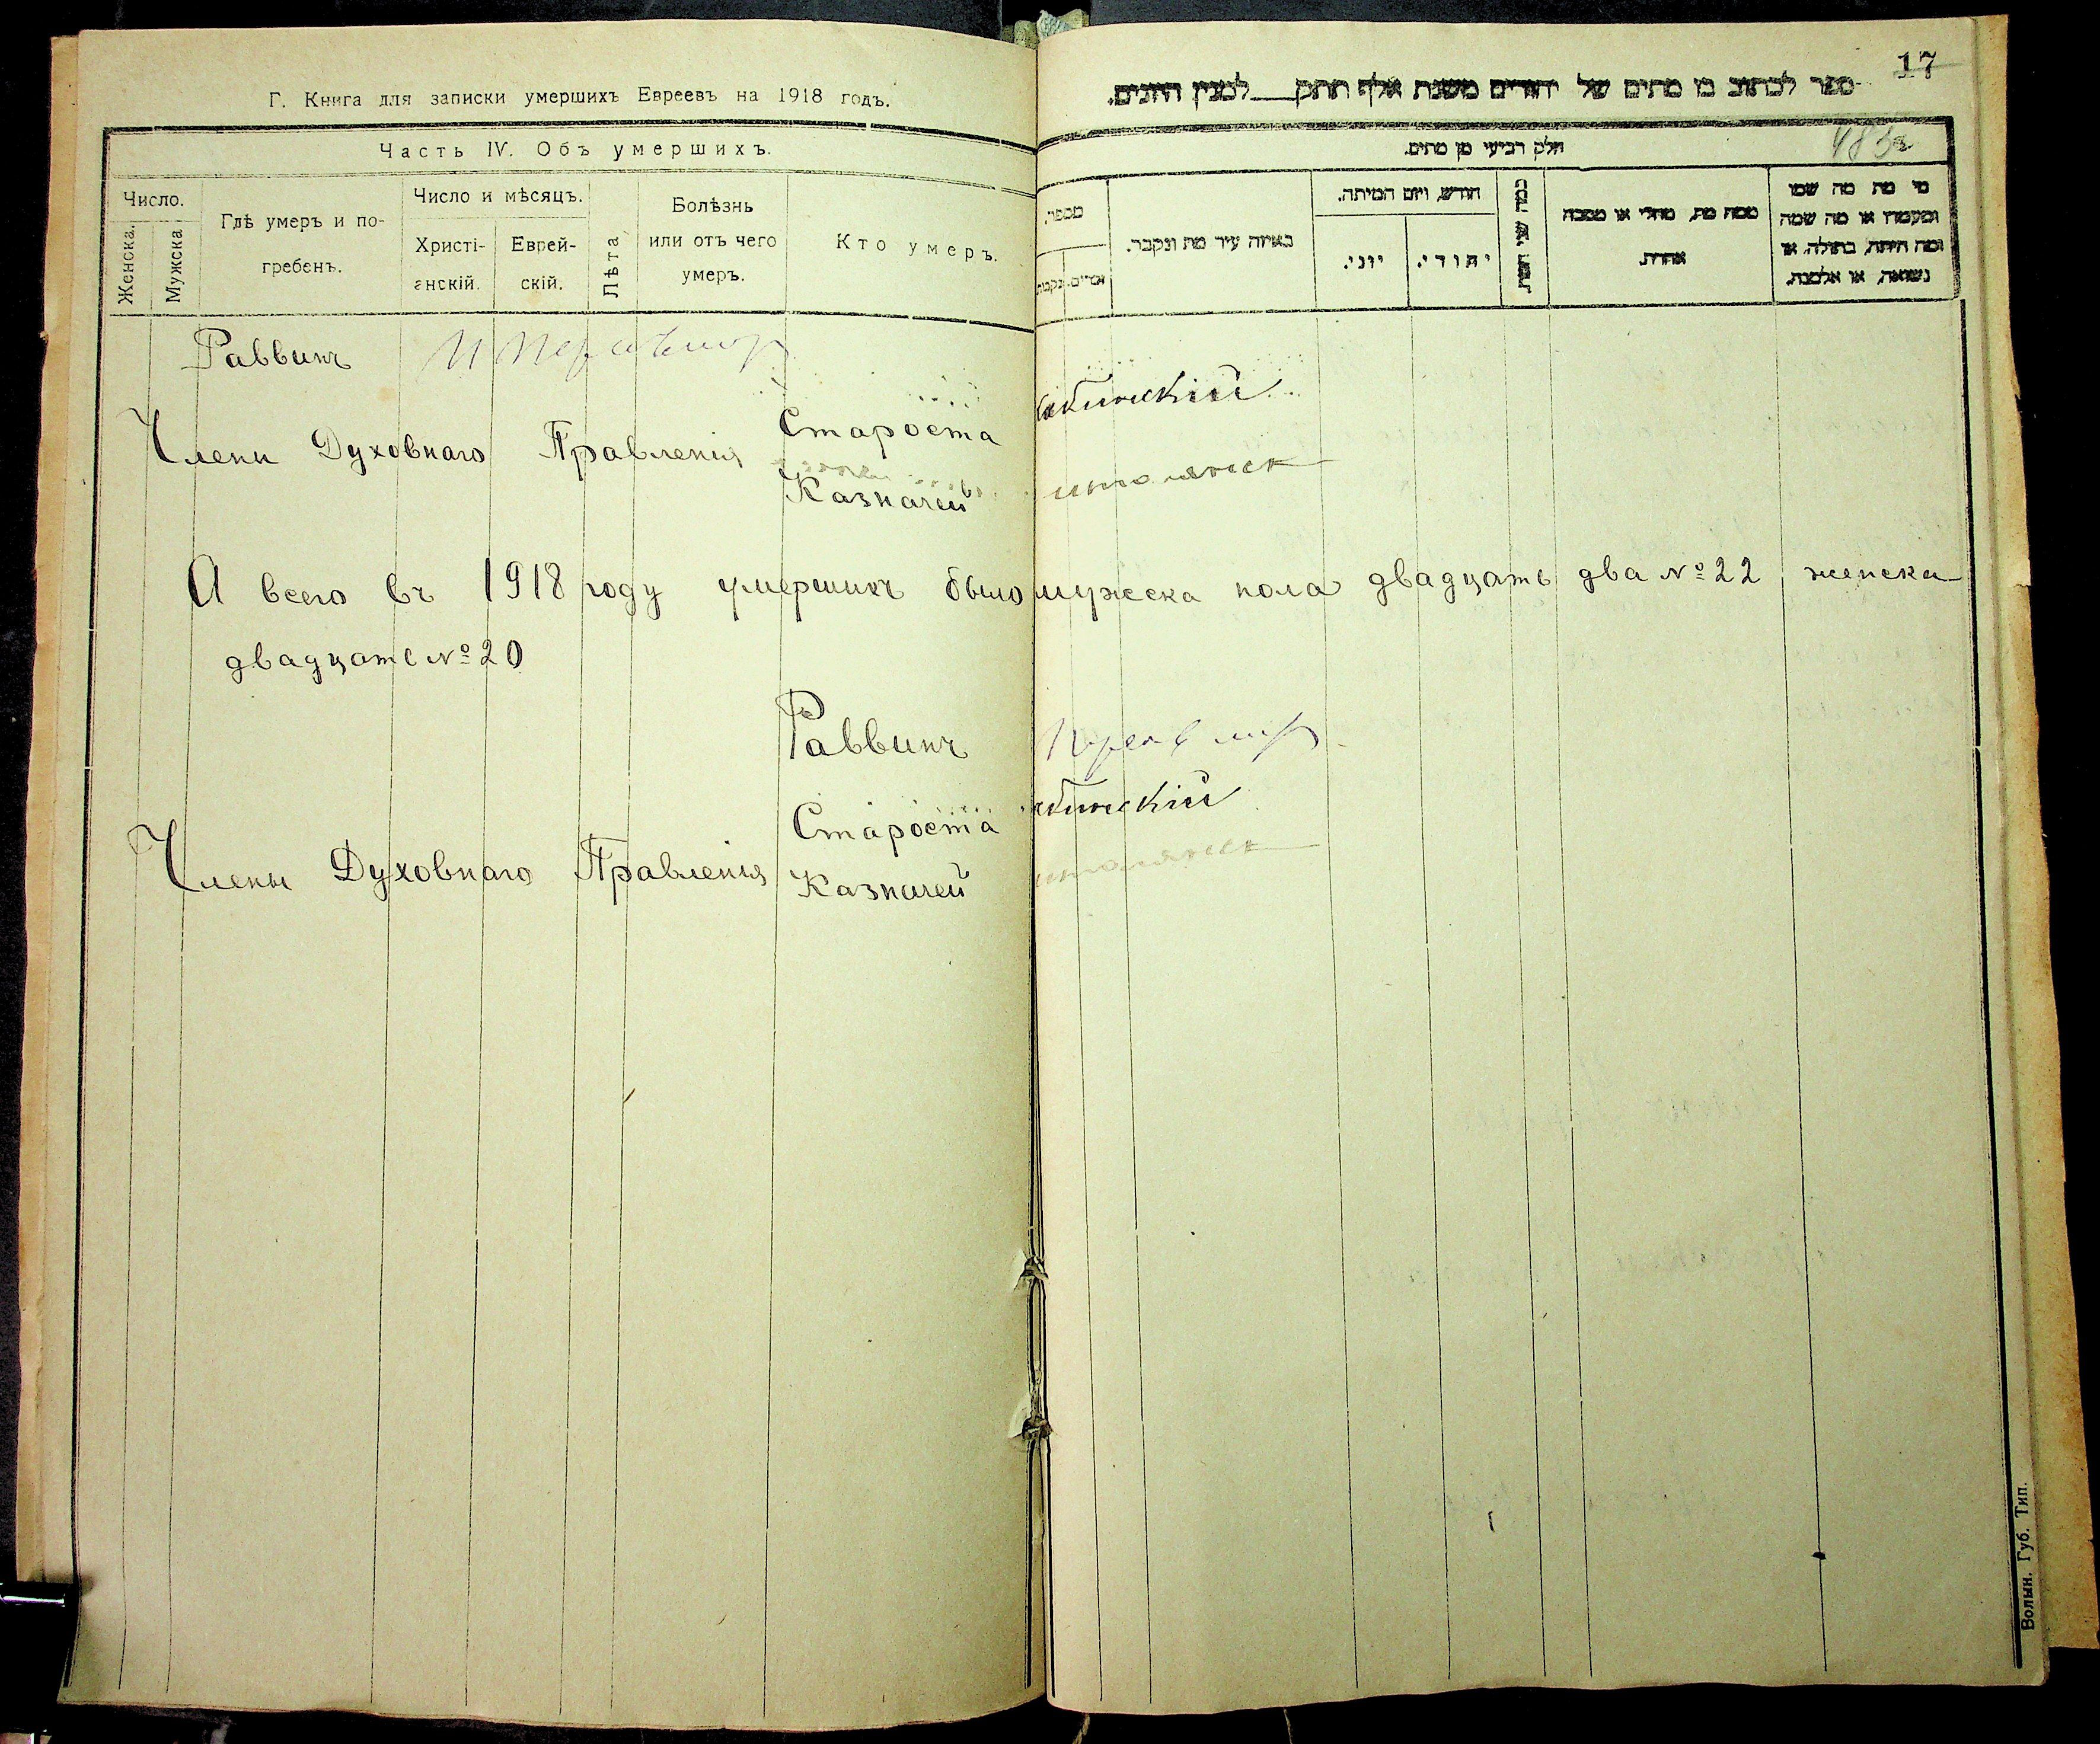 Г. Книга для записки умершихъ Евреевъ на 1918 годъ.
Часть IV. Объ умершихъ.
Число.
Женска.
Мужска
Гдѣ умеръ и по-
гребенъ.
Число и мѣсяцъ.
Христі-
анскій.
Еврей-
скій.
Лѣта
Болѣзнь
или отъ чего
умеръ.
Кто умеръ.
Раввинъ
Члени Духовнаго Правленія
Староста
Казначей
А всего въ 1918 году умершихъ было мужеска пола двадцать два №22 женска
двадцать №20
Раввинъ
Члены Духовнаго Правленія
Староста
Казначей
17
ספר לכתוב בו מתים של יהודים משנת אלף תתק לסנין היונים.
חלק רביעי מן מתים.
מספר.
זכרים.
נקבות
באיזה עיר מת ונקבר.
חודש, ויום המיתה.
יוני.
יהודי.
כמה שני
ממה מת, מחלי או מסבה
אחרת.
מי מת מה שמו
ומעמדו או מה שמה
ומה היתה, בתולה, או
נשואה, או אלמנה.
Волын. Губ. Тип.